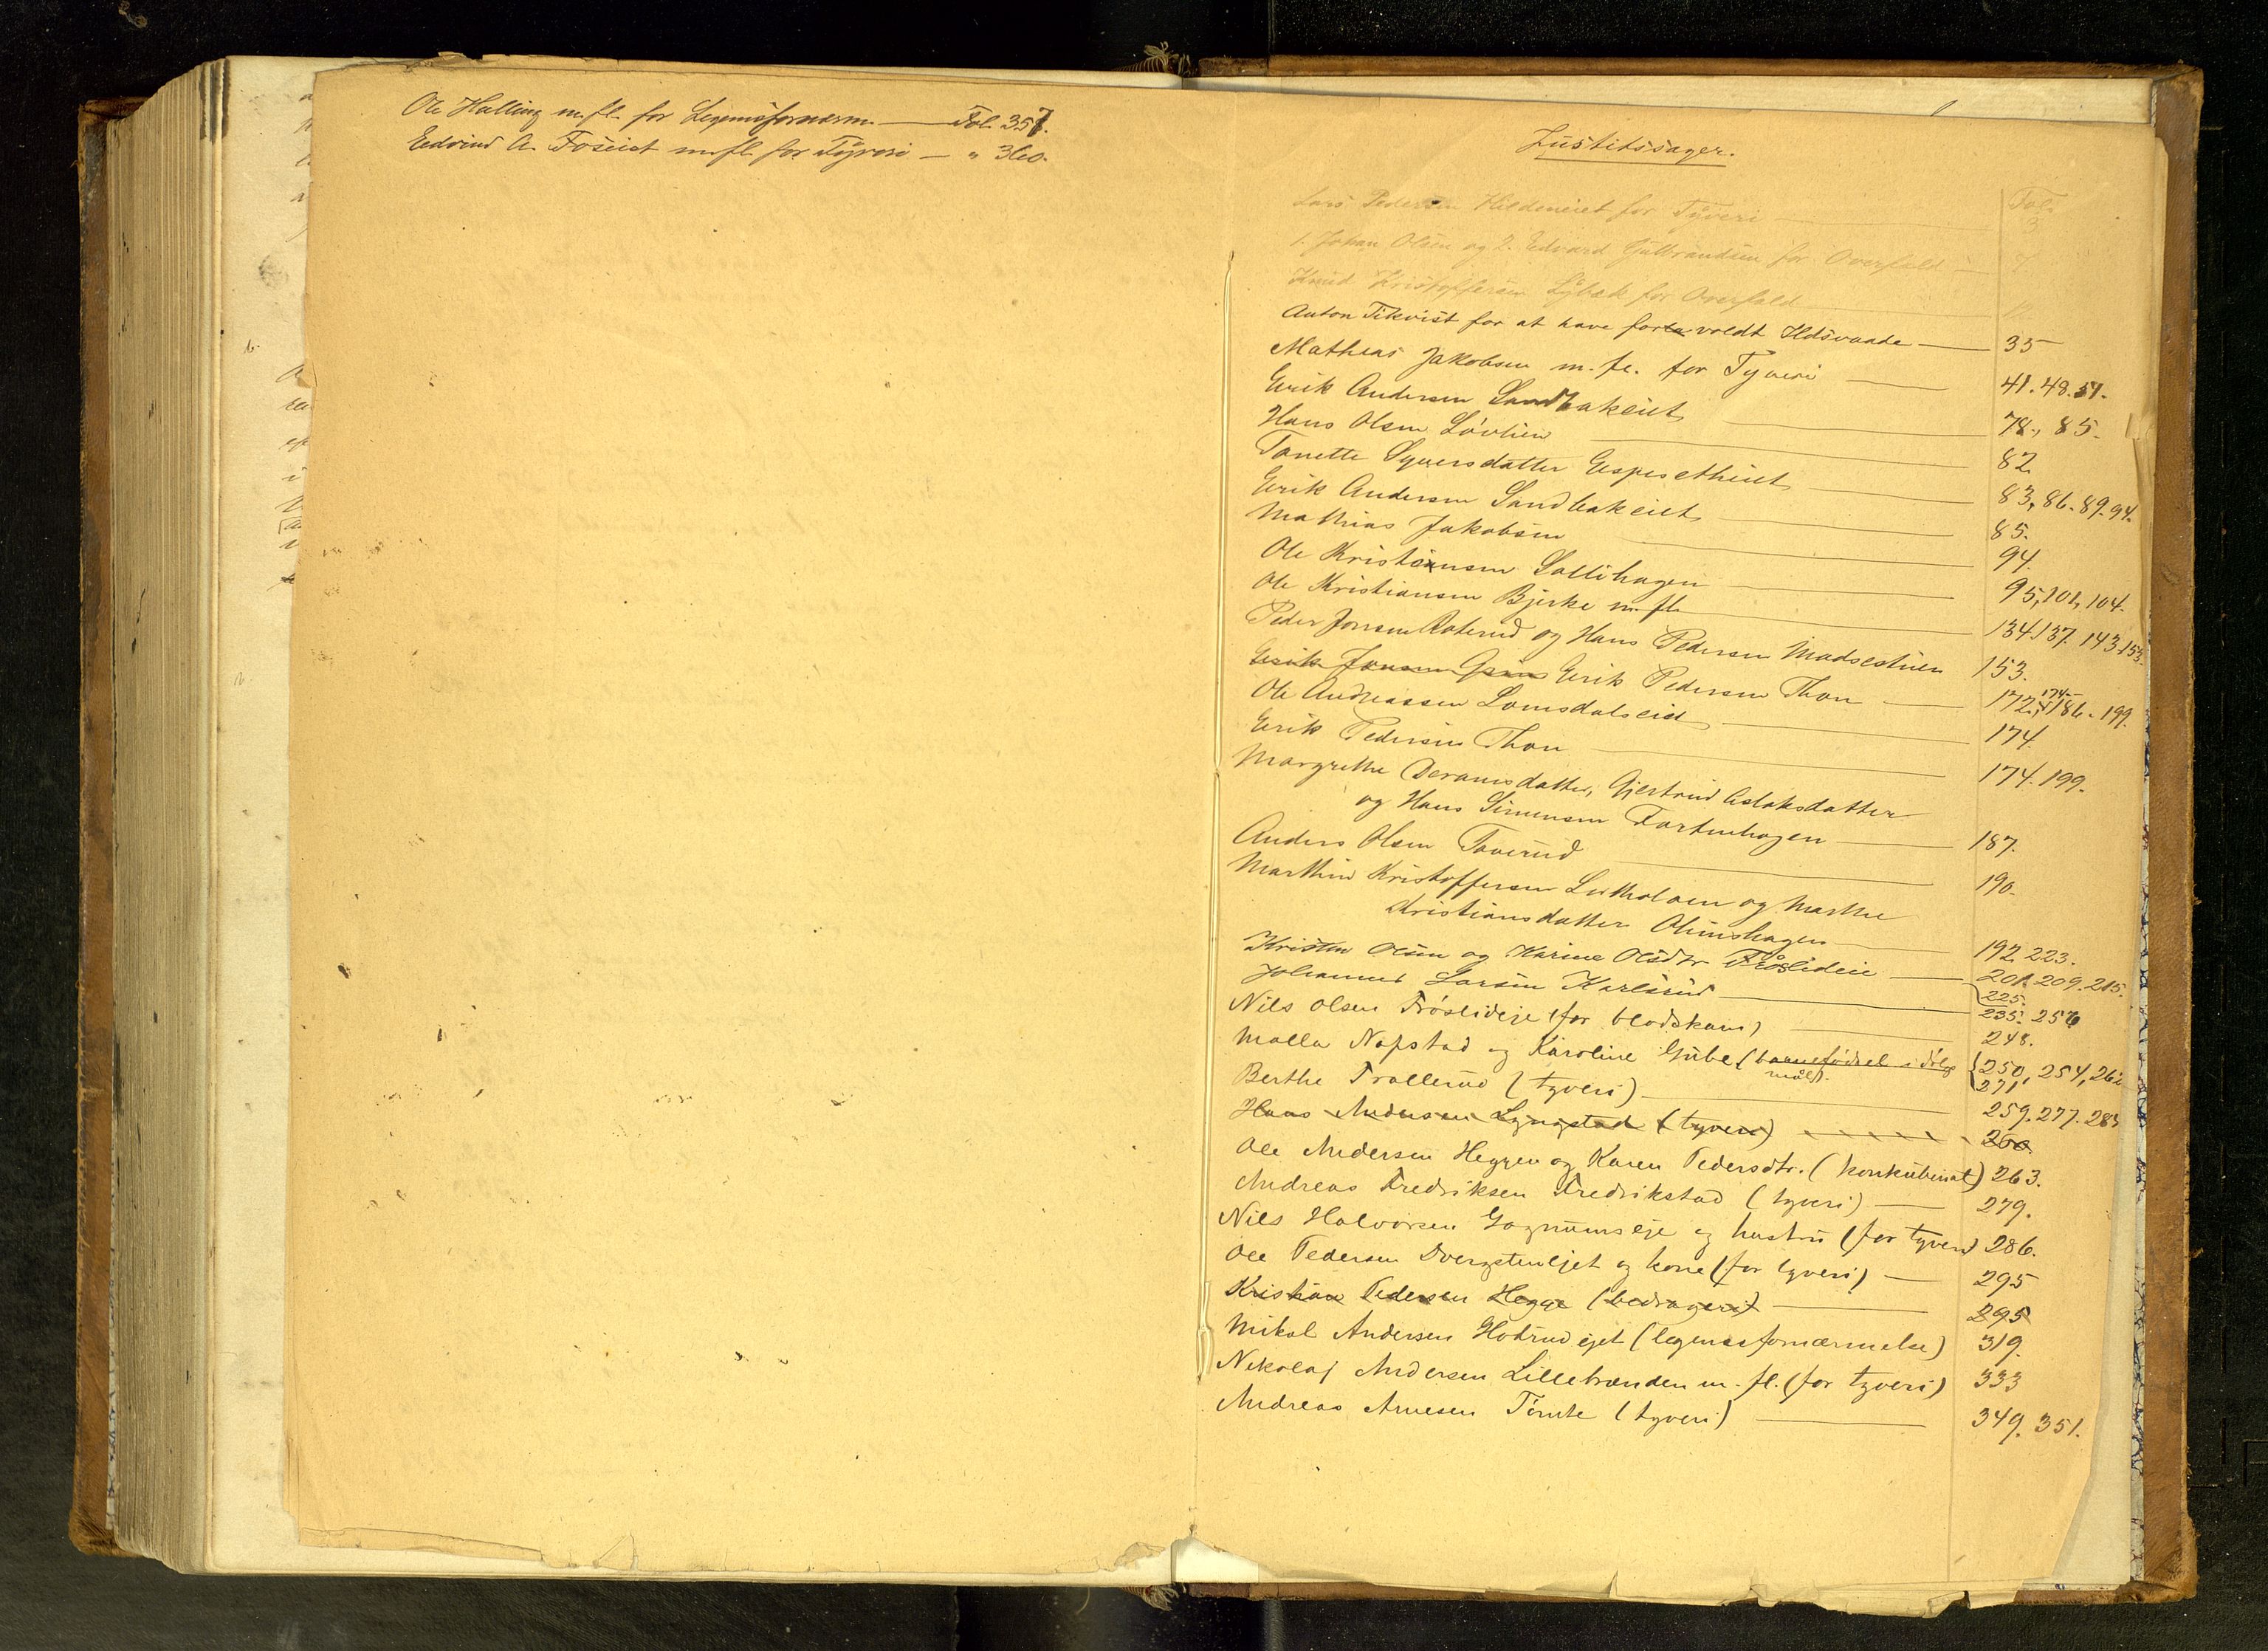 Ole Halling m. fl. for Legemsfornærm. — Fol. 357.
Edvind A. Foseiet m. fl. for Tyveri — " 360.
Justitssager.
Fol.
Lars Pedersen Hildeneiet for Tyveri — 3
1. Johan Olsen og 2. Edvard Gulbrandsen for Overfald — 7
Knud Kristoffersen Lybæk for Overfald
Anton Tikvist for at have forvoldt Ildsvaade — 35
Mathias Jakobsen m. fl. for Tyveri — 41. 48. 51.
Erik Andersen Sandbakeiet — 78., 85.
Hans Olsen Lövlien — 82
Tonette Syversdatter Gespesetheiet — 83, 86. 89. 94.
Erik Andersen Sandbakeiet — 85.
Mathias Jakobsen — 94.
Ole Kristiansen Sollihagen — 95, 101, 104.
Ole Kristiansen Bjerke m. fl. — 134. 137. 143. 153.
Peder Jonsen Roterud og Hans Pedersen Madsestuen 153.
Erik Jonsen Erik Pedersen Thon — 172, 174, 186. 199.
Ole Andreassen Lomsdalseiet — 174.
Erik Pedersen Thon — 174. 199.
Margrethe Deramsdatter, Gjertrud Aslaksdatter
og Hans Simensen Fortunhagen — 187.
Anders Olsen Toverud — 190.
Marthin Kristoffersen og Marthe
Kristiansdatter Olimshagen — 192. 223.
Kristen Olsen og Karine Olsdtr Fröslideie — 201. 209. 215. 225.
Johannes Larsen Karlsrud — 235. 256
Nils Olsen Fröslideje (for blodskam) — 248.
Malla Nafstad og Karoline Gube (barnefødsel i dølgsmål). {250, 254, 262 271
Berthe Trollerud (tyveri) — 259. 277. 283
Hans Andersen Lyngstad (tyveri) — 260
Ole Andersen Heggen og Karen Pedersdtr. (konkubinat) 263.
Andreas Fredriksen Fredrikstad (tyveri) — 279.
Nils Halvorsen Gagnumseje og hustru (for tyveri) 286.
Ole Pedersen Dvergstenejet og kone (for tyveri) — 295
Kristian Pedersen Hegge (bedrageri) — 295
Mikal Andersen Hotrudejet (legemsfornærmelse) 319.
Nikolaj Andersen Lillebrænden m. fl. (for tyveri) 333
Andreas Arnesen Tömte (tyveri) — 349. 351.